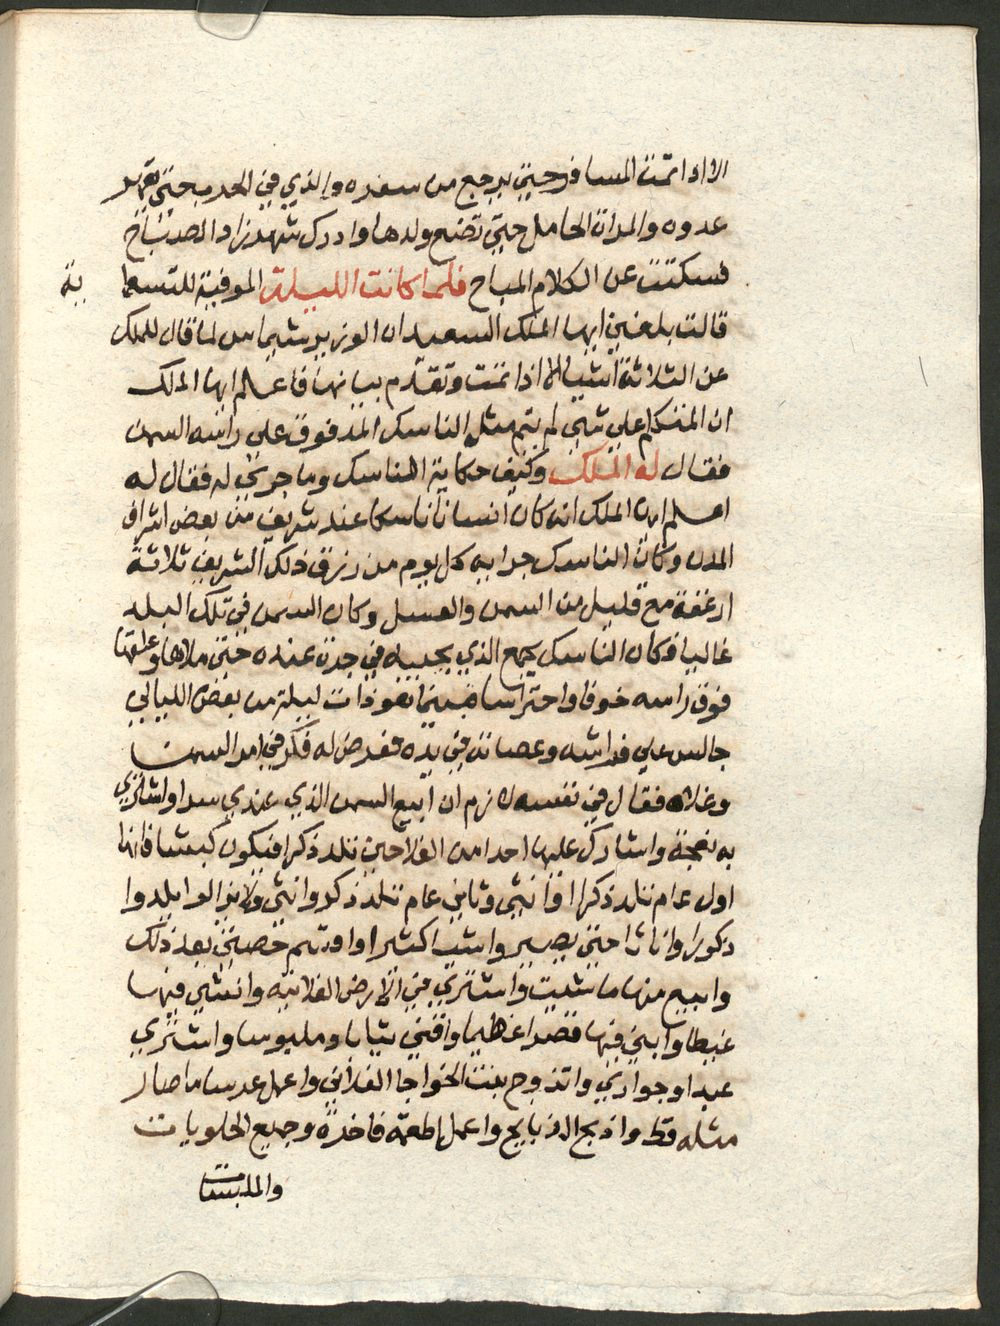 الا اذا تمت المسافر حتي يرجع من سفره والذي في الحرب حتي يقهر
عدوه والمراة الحامل حتي تضع ولدها وادرك شهرزاد الصباح
فسكتت عن الكلام المباح فلما كانت الليلة الموفية للتسعما
ية
قالت بلغني ايها الملك السعيد ان الوزير شيماس لما قال للملك
عن الثلاثة اشيا الا اذا تمت وتقدم بيانها فاعلم ايها الملك
ان المتكلم علي شي لم يتم مثل الناسك المدفوق علي راسه السمن
فقال له الملك وكيف حكاية الناسك وما جري له فقال له
اعلم ايها الملك انه كان انسانا ناسكا عند شريف من بعض اشراف
المدن وكان الناسك جرايه كل يوم من رزق ذلك الشريف ثلاثة
ارغفة مع قليل من السمن والعسل وكان السمن في تلك البلد
غاليا فكان الناسك يجمع الذي يجيبه في جرة عنده حتي ملاها وعلقها
فوق راسه خوفا واحتراسا فبينما هو ذات ليلة من بعض الليالي
جالس علي فراشه وعصاته في يده فعرض له فكر في امر السمن
وغلاه فقال في نفسه لازم ان ابيع السمن الذي عندي واشتري
به نعجة واشارك عليها احدا من الفلاحين تلد ذكرا فيكون كبشا فانها
اول عام تلد ذكرا وانثي وثاني عام تلد ذكر وانثي ولا يزالوا يلدوا
ذكورا واناثا حتي يصيروا شيا كثيرا واقسم حصتي بعد ذلك
وابيع منها ما شئيت واشتري في الارض الفلانيه وانشي فيها
غيطا وابني فيها قصرا عظيما واقني ثيابا ومليوسا واشتري
عبيدا وجواري واتزوج بنت الخواجا الفلاني واعمل عرسا ما صار
مثله قط واذبح الذبايح واعمل اطعمة فاخرة وجميع الحلويات
والملبسات